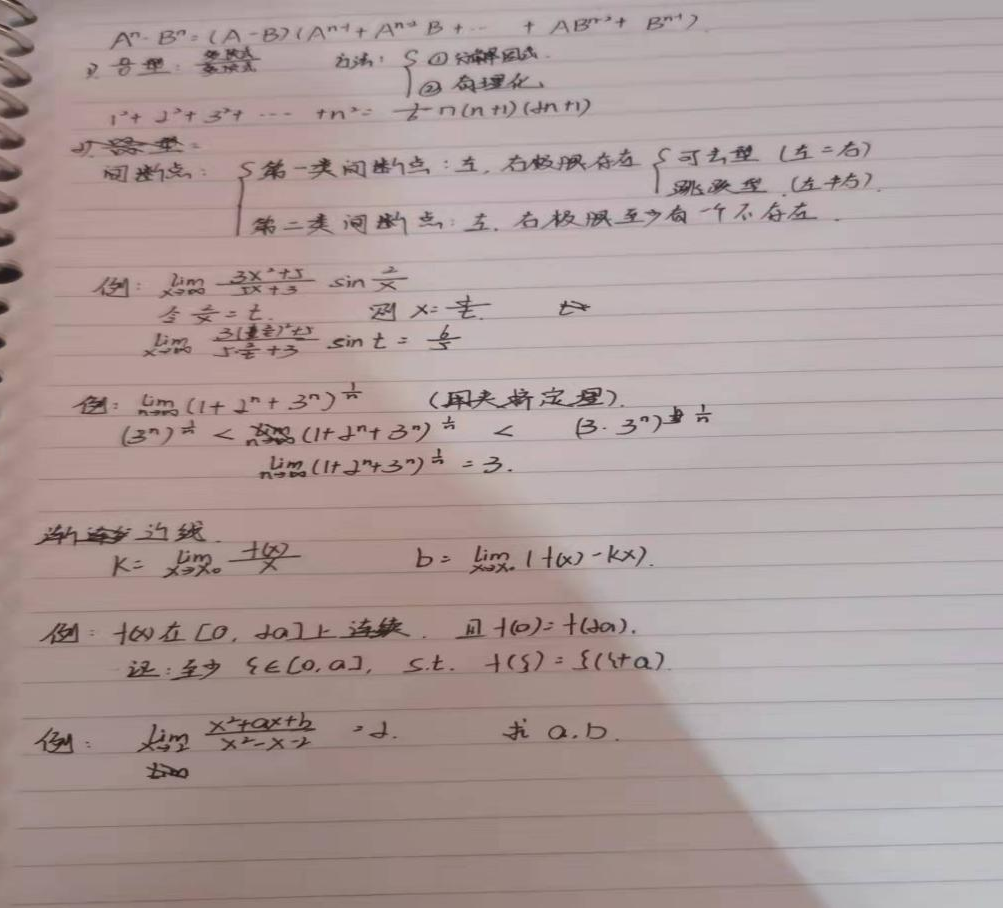 Aⁿ-Bⁿ=(A-B)(Aⁿ⁻¹+Aⁿ⁻²B+… + ABⁿ⁻²+ Bⁿ⁻¹).
型: 多项式/多项式 方法: { ① 分解因式.
② 有理化.
1²+2²+3²+ … +n²= 1/6 n(n+1)(2n+1)
间断点: { 第一类间断点: 左, 右极限存在 { 可去型 (左=右)
跳跃型 (左≠右).
第二类间断点: 左, 右极限至少有一个不存在.
例: lim x→∞ (3x²+5)/(5x+3) sin 2/x
令 2/x = t. 则 x= 2/t.
lim x→∞ (3(2/t)²+5)/(5·2/t+3) sin t = 6/5
例: lim n→∞ (1+2ⁿ+3ⁿ)^(1/n) (用夹挤定理).
(3ⁿ)^(1/n) < (1+2ⁿ+3ⁿ)^(1/n) < (3·3ⁿ)^(1/n)
lim n→∞ (1+2ⁿ+3ⁿ)^(1/n) = 3.
渐近线.
K= lim x→x₀ f(x)/x b= lim x→x₀ (f(x)-kx).
例: f(x)在[0, 2a]上连续. 且f(0)=f(2a).
证:至少 ξ∈[0,a], s.t. f(ξ)=f(ξ+a)
例: lim x→2 (x²+ax+b)/(x²-x-2) =2. 求 a.b.